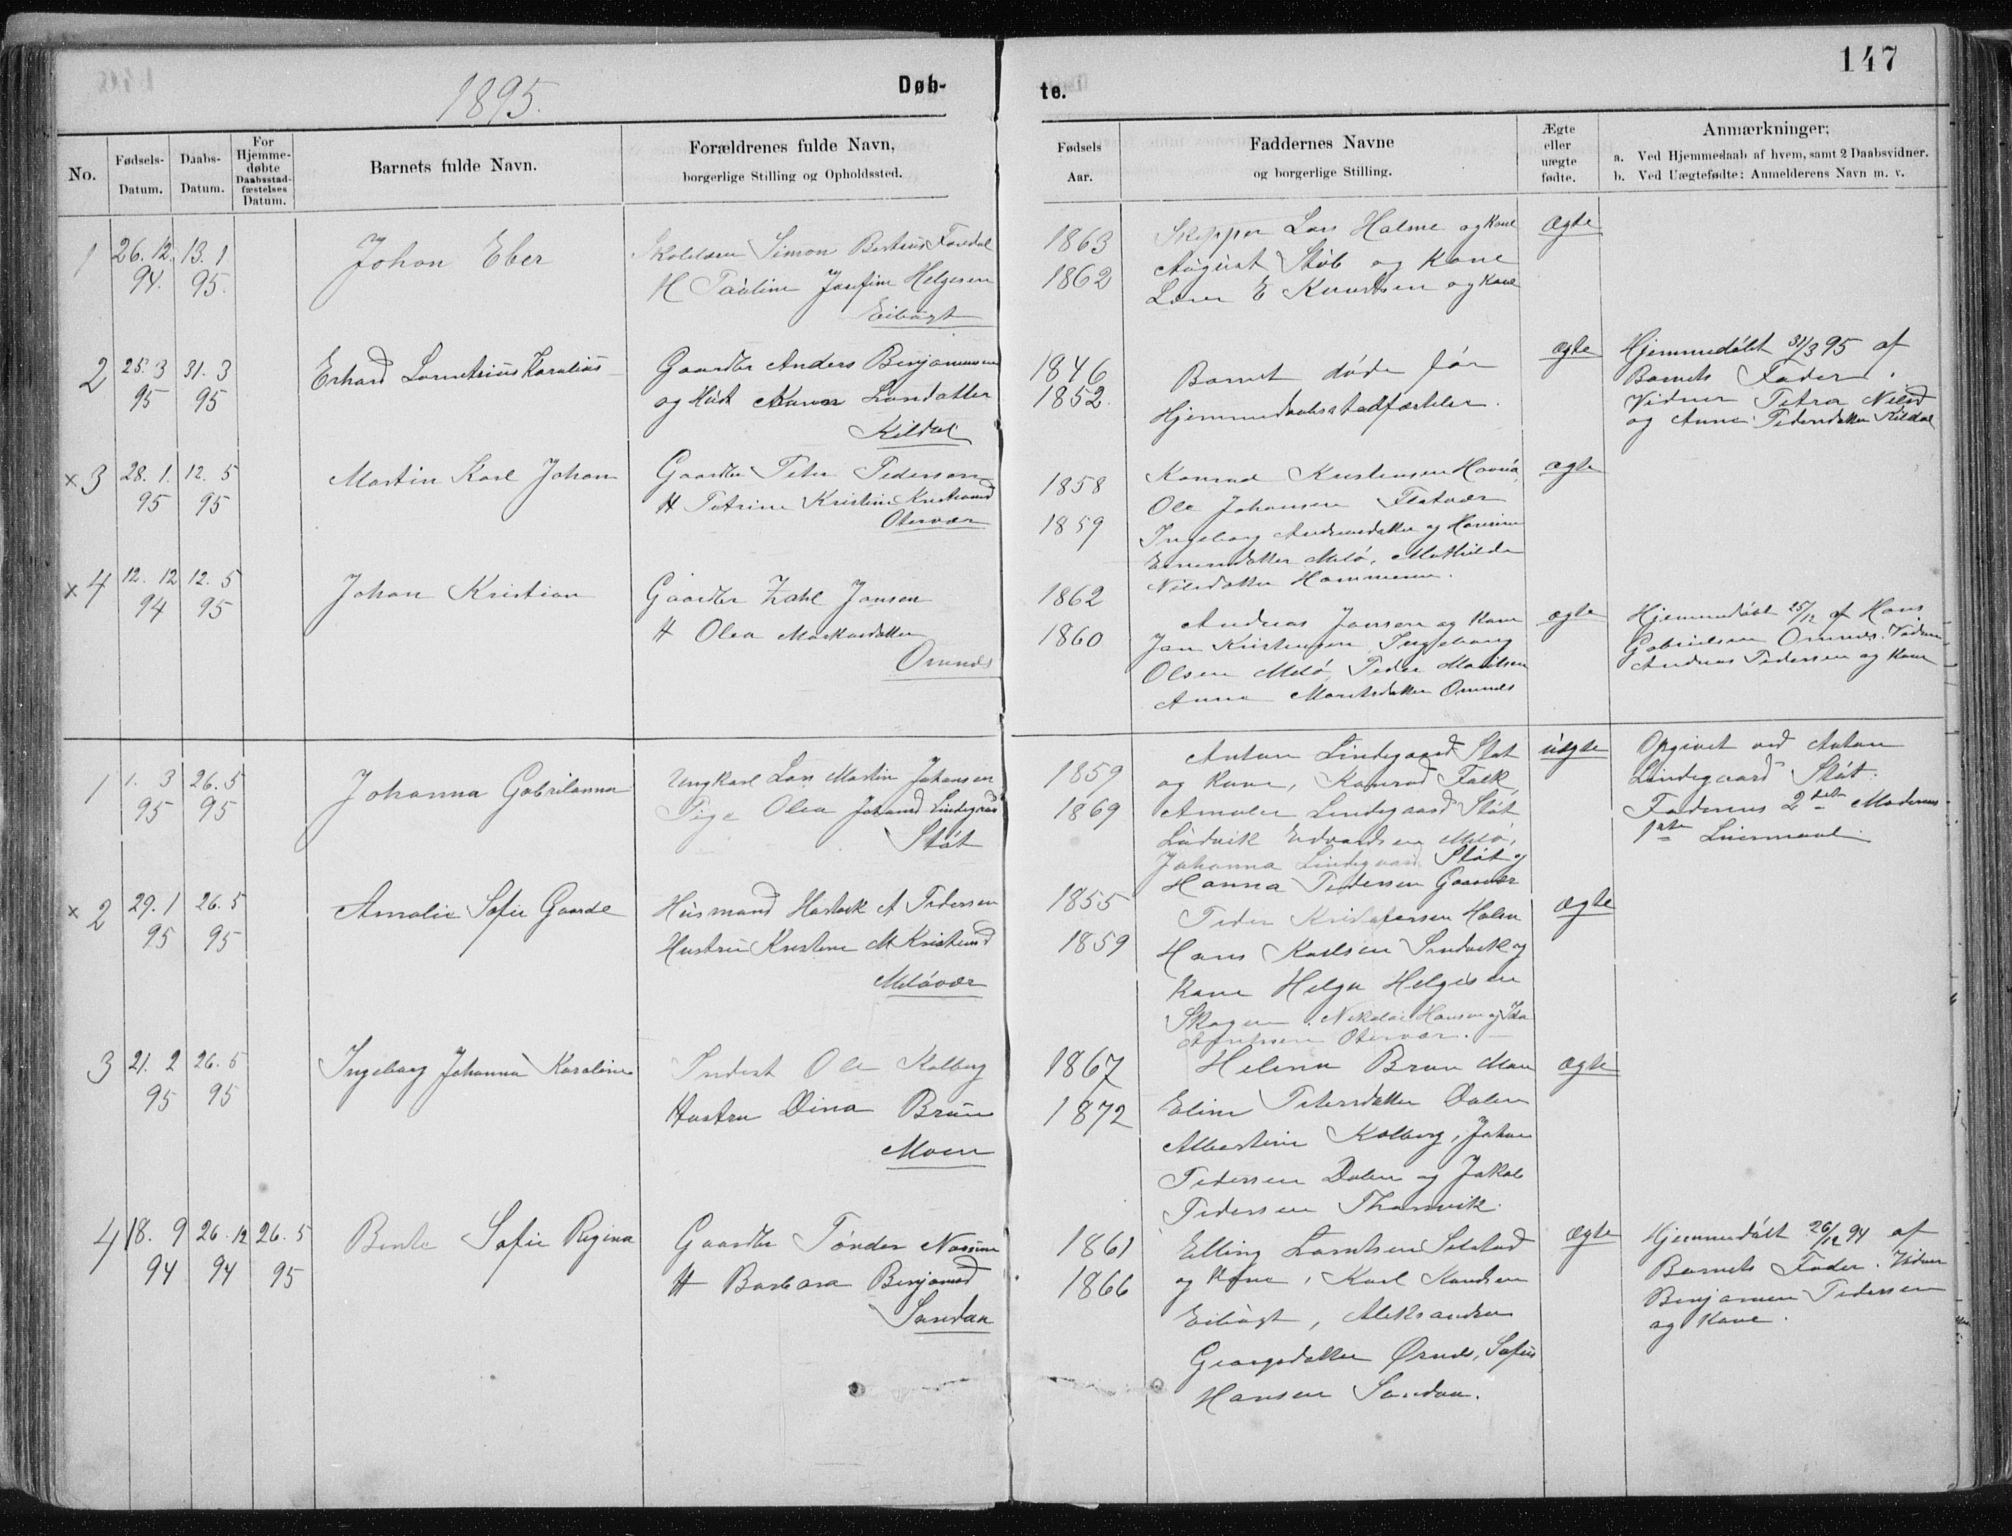 147
1895.
Døb-
te.
No.
Fødsels-
Datum.
Daabs-
Datum.
For
Hjemme-
døbte
Daabsstad-
fæstelses
Datum.
Barnets fulde Navn.
Forældrenes fulde Navn,
borgerlige Stilling og Opholdssted.
Fødsels
Aar.
Faddernes Navne
og borgerlige Stilling.
Ægte
eller
uægte
fødte.
Anmærkninger;
a. Ved Hjemmedaab af hvem, samt 2 Daabsvidner.
b. Ved Uægtefødte: Anmelderens Navn m. v.
1
26. 12. 94.
13. 1 95.
Johan Eber
Simon
H Pauline Josefine Helgesen
1863
1862
Skipper Lars Holme og Kone
August Støb og Kone
E Knudsen og Kone
ægte
2
25. 3 95
31. 3 95
Erhard Kornelius
Gaardbr Anders Benjaminsen
og Hust Karen
Kildal
1846
1852.
Barnet døde før
Hjemmedaabsstadfæstelse.
ægte
Hjemmedøbt 31/3 95 af
Barnets Fader.
Vidner Petra
og Anne Pedersdatter Kildal
x 3
28. 1. 95
12. 5 95
Martin Karl Johan
Gaardbr Peter Pedersen
H Petrine Kristine
Otervær
1858
1859
Konrad Kristensen
Ole Johansen Flatvær
Ingeborg Andersdatter og
Melø, Mathilde
Nilsdatter Hammeren.
ægte
x 4
12. 12 94
12. 5 95
Johan Kristian
Gaardbr Zahl Jansen
H Olea Markusdatter
Ornnes
1862
1860
Andreas Jansen og Kone
Jan Kristensen, Ingeborg
Olsen Melø, Peder
Anne Ornnes
ægte
Hjemmedøbt 25/12 af Hans
Gabrielsen Ornnes. Vidner
Andreas Pedersen og Kone
1
1. 3 95
26. 5 95
Johanna Gabrilanna
Ungkarl Lars Martin Johansen
Pige Olea Lindegaard
Støt
1859
1869
Anton Lindegaard Støt
og Kone, Konrad Falk,
Lindegaard Støt
Ludvik Edvardsen Melø,
Johanna Lindegaard Støt og
Hanna Pedersen
uægte
Opgivet ved Anton
Lindegaard Støt.
Faderens 2det Moderens
1ste Leiermaal
x 2
29. 1 95
26. 5 95
Amalie Sofie Gaarde
Husmand Hartvik A Pedersen
Hustru Kristine M
Meløvær
1855
1859
Peder Kristofersen Holm
Hans Karlsen Sandvik og
Kone Helga Helgesen
Skogen. Nikolai Hansen og
Otervær.
ægte
3
21. 2 95
26. 5 95
Ingeborg Johanna
Inderst Ole Kolberg
Hustru Dina Bruun
Moen
1867
1872
Helena Brun Moen
Eline Petersdatter Dalen
Albertine Kolberg, Johan
Pedersen Dalen og Jakob
Pedersen
ægte
4
18. 9 94
26. 12 94
26. 5 95
Bente Sofie Regina
Gaardbr Tønder
H Barbara Benjamsd
Sandaa
1861
1866
Elling Lorntsen Selstad
og Kone, Karl Knudsen
Eibugt, Aleksandra
Georgsdatter Ørnes, Sofus
Hansen Sandaa.
ægte
Hjemmedøbt 26/12 94 af
Barnets Fader. Vidner
Benjamin Pedersen
og Kone.